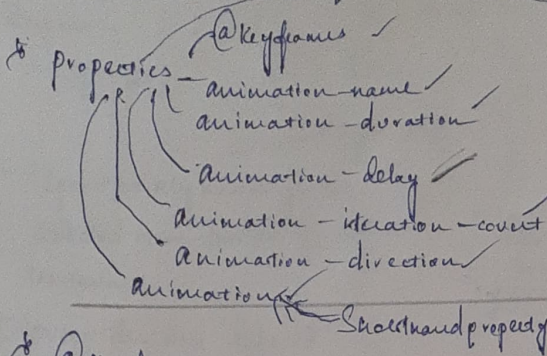 @keyframes ✓
* properties
animation-name ✓
animation-duration ✓
animation-delay ✓
animation-iteration-count ✓
animation-direction ✓
animation
Shorthand property